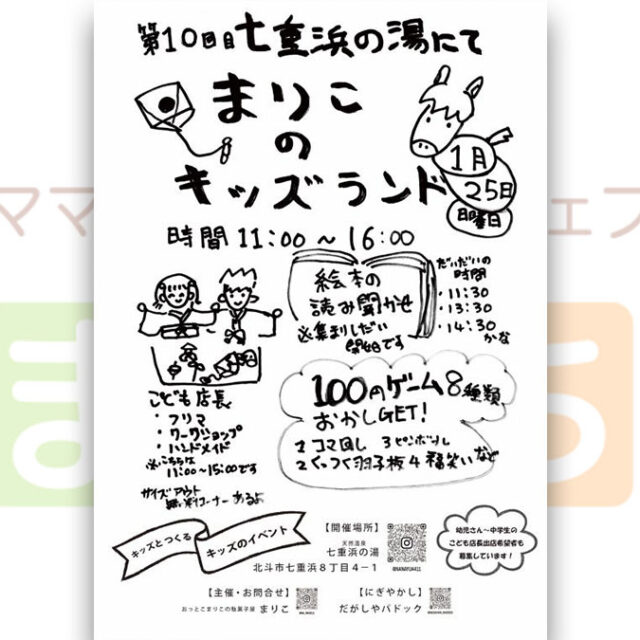 第10回目七重浜の湯にて
まりこ
の
キッズランド
1月
25日
日曜日
時間 11:00～16:00
絵本の
読み聞かせ
※集まりしだい
開始です
だいだいの
時間
・11:30
・13:30
・14:30
かな
こども店長
・フリマ
・ワークショップ
・ハンドメイド
※こちらは
11:00～15:00です
サイズアウト
コーナーあるよ
100円ゲーム8種類
おかしGET!
1 コマ回し 3 ピンボール
2 くっつく羽子板 4 福笑いなど
キッズとつくる
キッズのイベント
【開催場所】
天然温泉
七重浜の湯
北斗市七重浜8丁目4−1
幼児さん〜中学生の
こども店長出店希望者も
募集しています!
【主催・お問合せ】
おっとこまりこの駄菓子屋 まりこ
【にぎやかし】
だがしやパドック
ママ
ェフ
ま
る